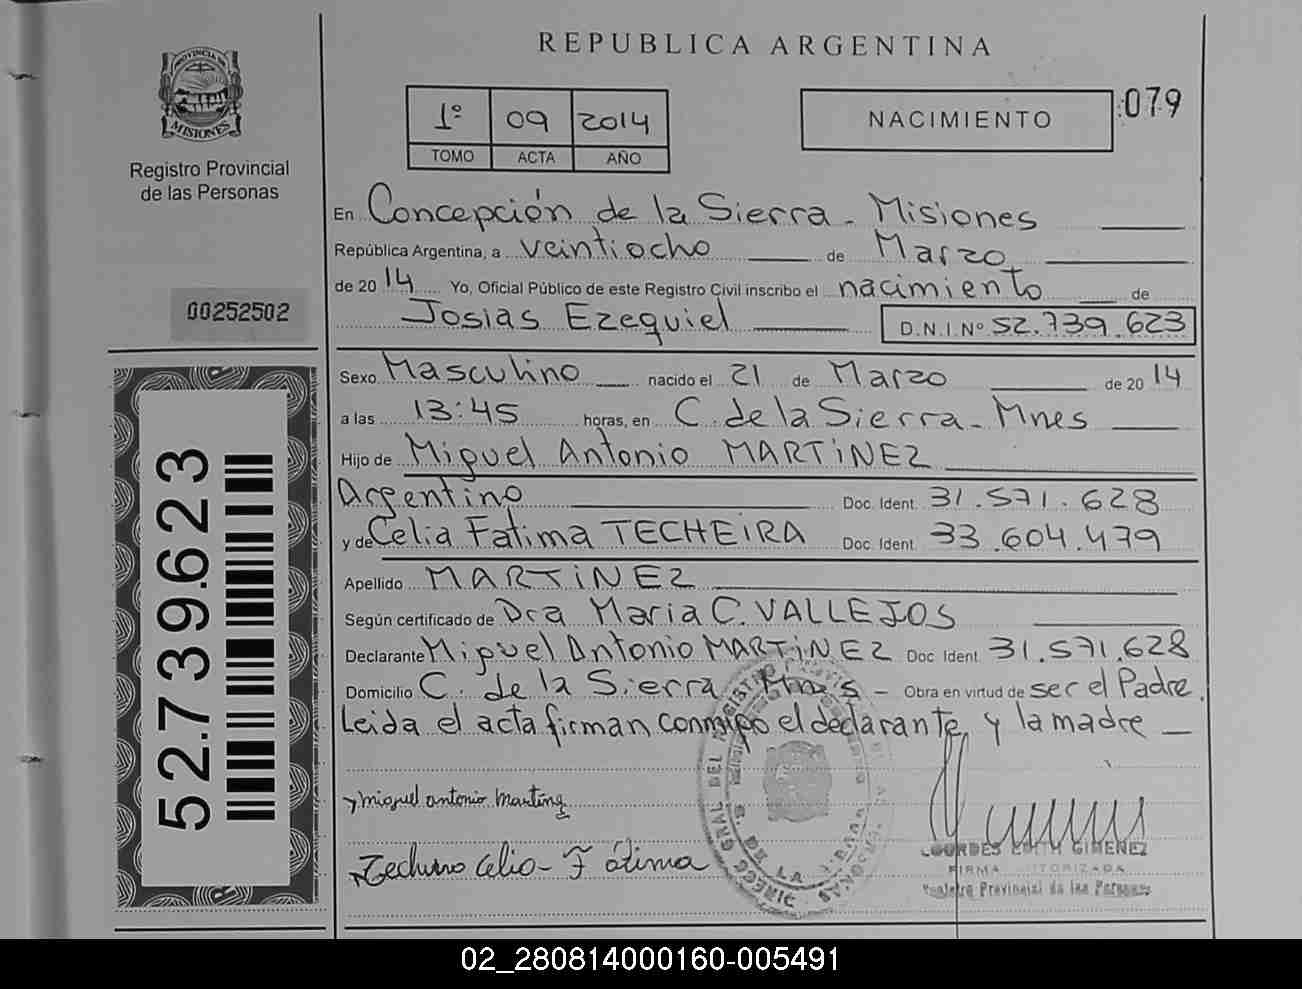 REPUBLICA ARGENTINA
PROVINCIA DE
MISIONES
Registro Provincial
de las Personas
1º 09 2014
TOMO ACTA AÑO
NACIMIENTO
079
En Concepción de la Sierra - Misiones
República Argentina, a veintiocho de Marzo
de 2014 Yo, Oficial Público de este Registro Civil inscribo el nacimiento de
00252502
Josias Ezequiel D.N.I.Nº 52.739.623
Sexo Masculino nacido el 21 de Marzo de 2014
a las 13:45 horas, en C. de la Sierra - Mnes
Hijo de Miguel Antonio MARTiNEZ
Argentino Doc. Ident. 31.571.628
y de Celia Fatima TECHEiRA Doc. Ident. 33.604.479
Apellido MARTiNEZ
Según certificado de Dra Maria C. VALLEJOS
Declarante Miguel Antonio MARTiNEZ Doc Ident. 31.571.628
Domicilio C. de la Sierra Mnes - Obra en virtud de ser el Padre.
Leida el acta firman conmigo el declarante y la madre
52.739.623
miguel antonio Martinez
LOURDES EDITH GIMENEZ
FIRMA AUTORIZADA
Registro Provincial de las Personas
02_280814000160-005491